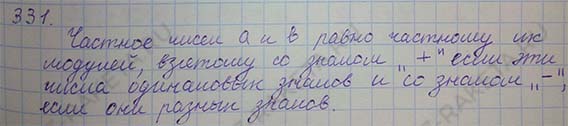 331.
Частное чисел a и b равно частному их
модулей, взятому со знаком „+" если эти
числа одинаковых знаков и со знаком „-",
если они разных знаков.